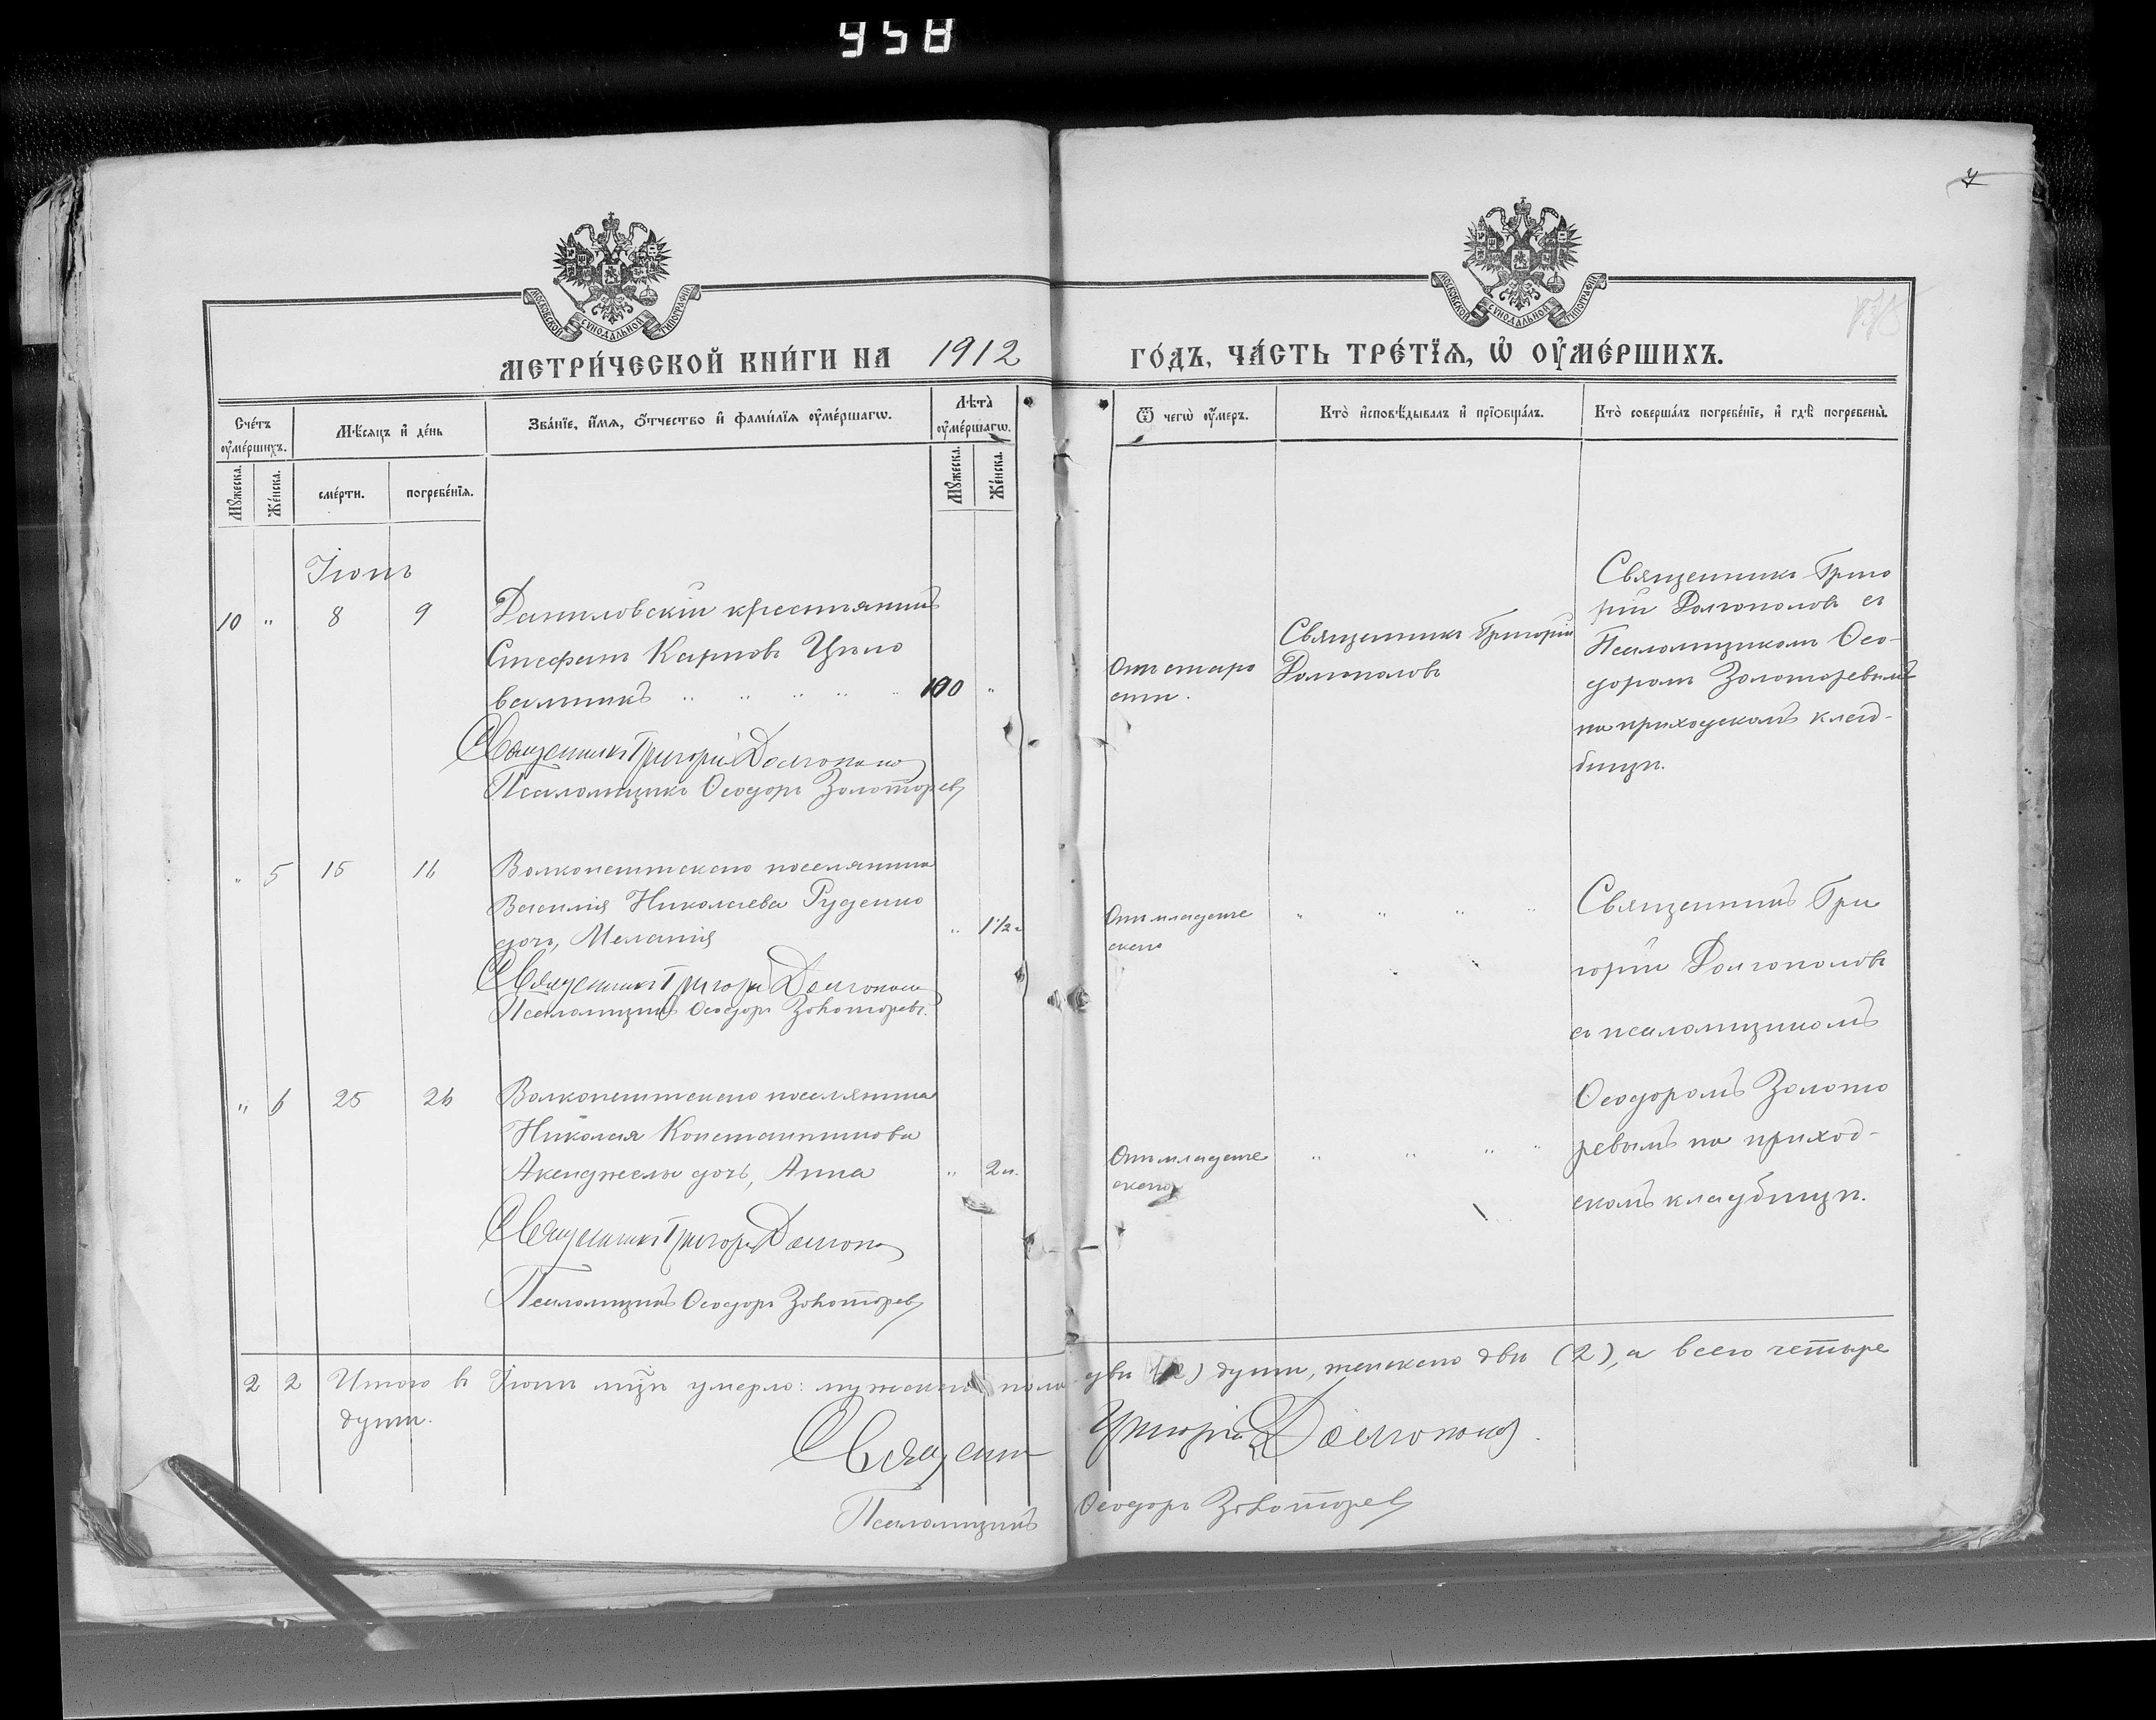 958
7
МОСКОВСКОЙ СѴНОДАЛЬНОЙ ТИПОГРАФІИ
МОСКОВСКОЙ СѴНОДАЛЬНОЙ ТИПОГРАФІИ
МЕТРИ́ЧЕСКОЙ КНИ́ГИ НА 1912 ГО́ДЪ, ЧА́СТЬ ТРЕ́ТЇѦ, Ѡ҆ ОУ҆МЕ́РШИХЪ.
Сче́тъ оу҆ме́ршихъ.
Мꙋ́жеска.
Же́нска.
Мѣ́сяцъ и҆ де́нь
сме́рти.
погребе́нїѧ.
Зва́нїе, и҆́мѧ, ѻ҆́тчество и҆ фами́лїѧ оу҆ме́ршагѡ.
Лѣ̀та̀ оу҆ме́ршагѡ.
Мꙋ́жеска.
Же́нска.
Ѿ чегѡ̀ оу҆́меръ.
Кто̀ и҆сповѣ́дывалъ и҆ прїѻбща́лъ.
Кто̀ соверша́лъ погребе́нїе, и҆ гдѣ̀ погребены̀.
Іюнь
10 " 8 9
Даниловскій крестьянинъ
Стефанъ Карповъ Цыпо
вяшникъ " " " " " 100 "
Священникъ Григорій Долгополо
Псаломщикъ Ѳеодоръ Золоторевъ
Отъ старо
сти.
Священникъ Григорій
Долгополовъ
Священникъ Григо
рій Долгополовъ съ
Псаломщикомъ Ѳео-
доромъ Золоторевымъ
на приходскомъ клад-
бищѣ.
" 5 15 16
Волконештскаго поселянина
Василія Николаева Руденко
дочь, Меланія " 1½ г
Священникъ Григорій Долгополо
Псаломщикъ Ѳеодоръ Золоторевъ.
Отъ младенче
скаго
" " " "
Священникъ Гри
горій Долгополовъ
съ псаломщикомъ
Ѳеодоромъ Золото
ревымъ на приход-
скомъ кладбищѣ.
" 6 25 26
Волконештскаго поселянина
Николая Константинова
дочь, Анна " 2 н.
Священникъ Григорій Долгопо
Псаломщикъ Ѳеодоръ Золоторевъ
Отъ младенче
скаго
" " " "
2 2 Итого въ Іюнѣ мцѣ умерло: мужескаго пола двѣ (2) души, женскаго двѣ (2), а всего четыре
души.
Священни Григорій Долгополов.
Псаломщикъ Ѳеодоръ Золоторевъ